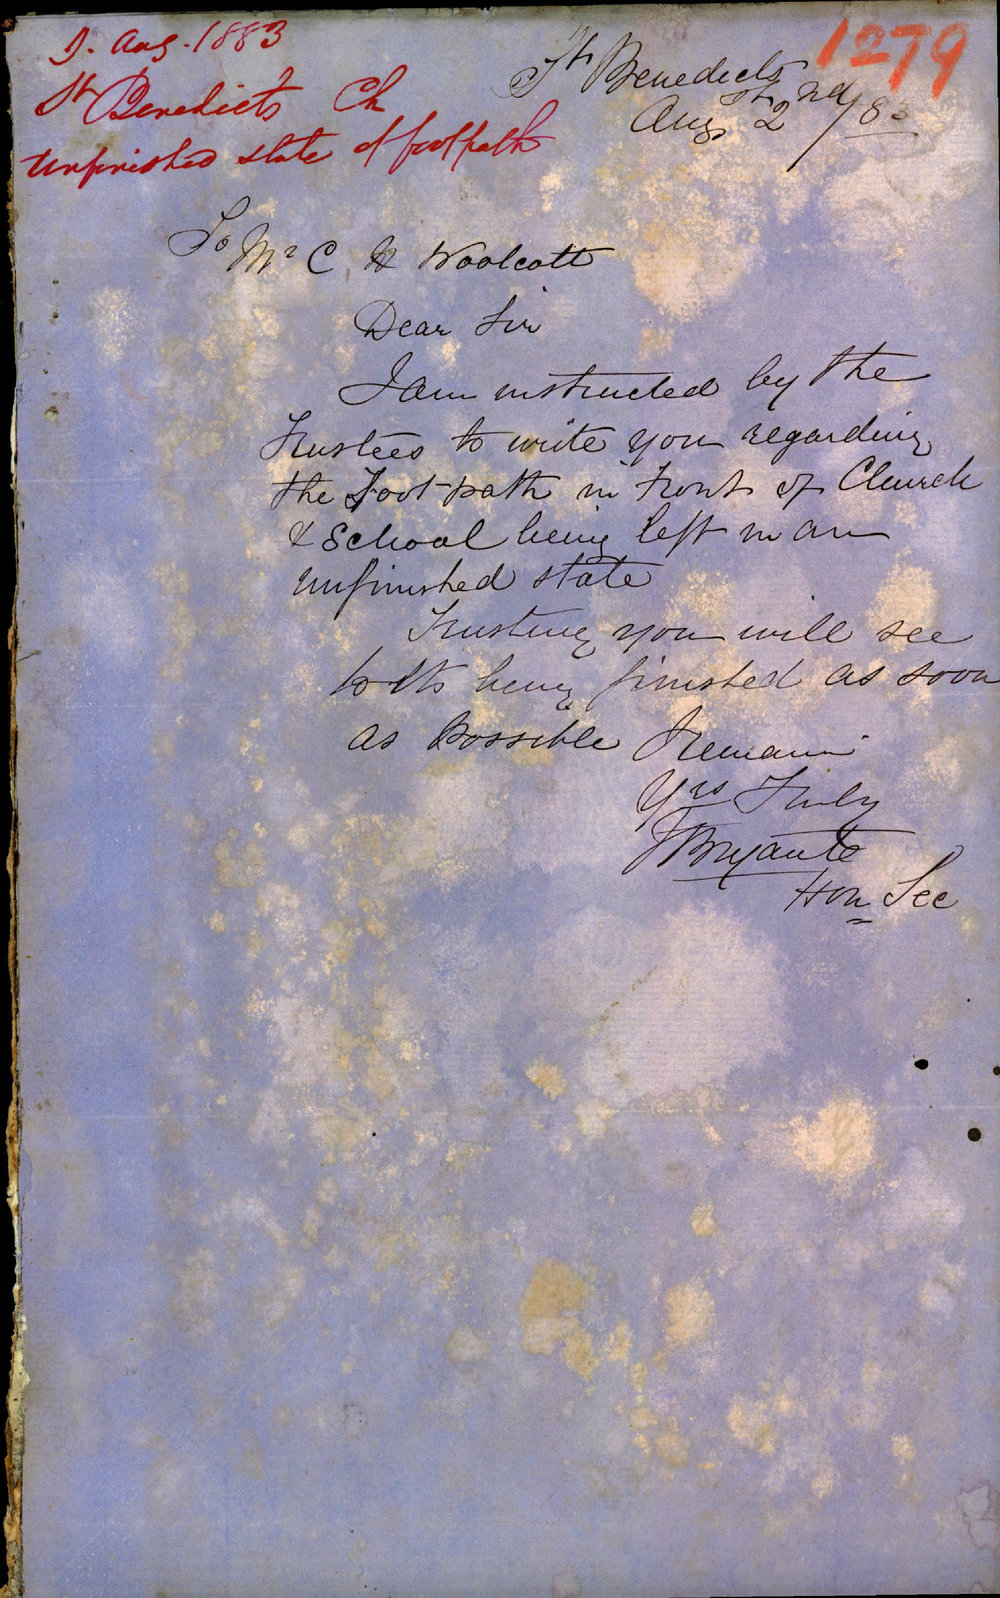 2. Aug. 1883
St Benedicts Ch
unfinished state of footpath
1279
St Benedicts
Augst 2nd/83
To Mr C H Woolcott
Dear Sir
I am instructed by the
Trustees to write you regarding
the Foot path in Front of Church
& School being left in an
unfinished state
Trusting you will see
to its being finished as soon
as Possible I remain
Yrs Truly
J Bryante
Hon Sec